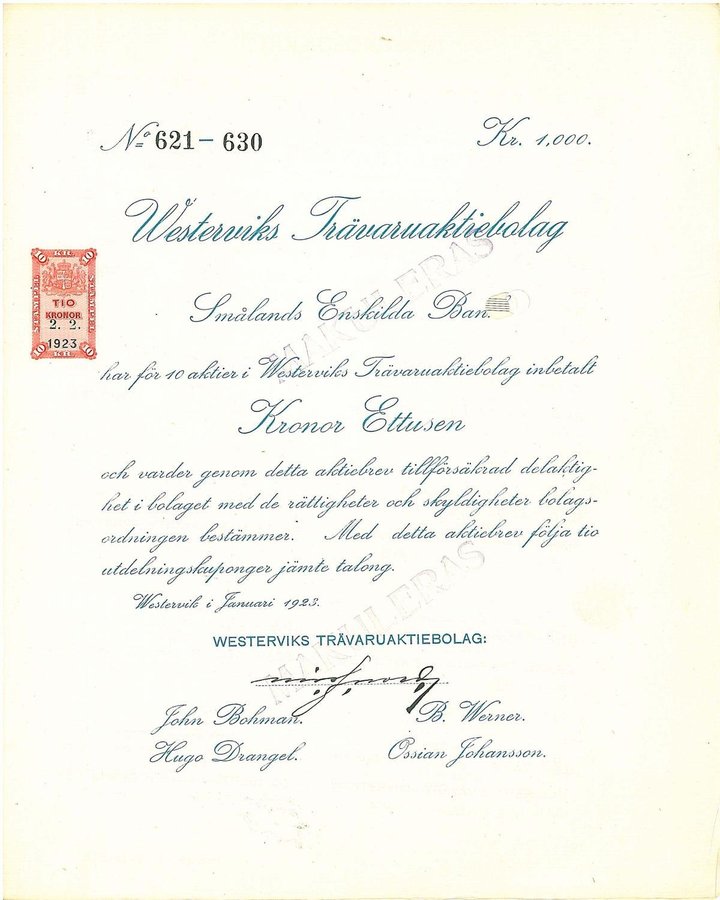 Nº 621 – 630
Kr. 1,000.
Westerviks Trävaruaktiebolag
10 KR. 10
STÄMPEL STÄMPEL
TIO
KRONOR
2. 2.
1923
10 KR 10
Smålands Enskilda Ban
har för 10 aktier i Westerviks Trävaruaktiebolag inbetalt
Kronor Ettusen
och varder genom detta aktiebrev tillförsäkrad delaktig-
het i bolaget med de rättigheter och skyldigheter bolags-
ordningen bestämmer. Med detta aktiebrev följa tio
utdelningskuponger jämte talong.
Westervik i Januari 1923.
WESTERVIKS TRÄVARUAKTIEBOLAG:
John Bohman. B. Werner.
Hugo Drangel. Ossian Johansson.
MAKULERAS
MAKULERAS